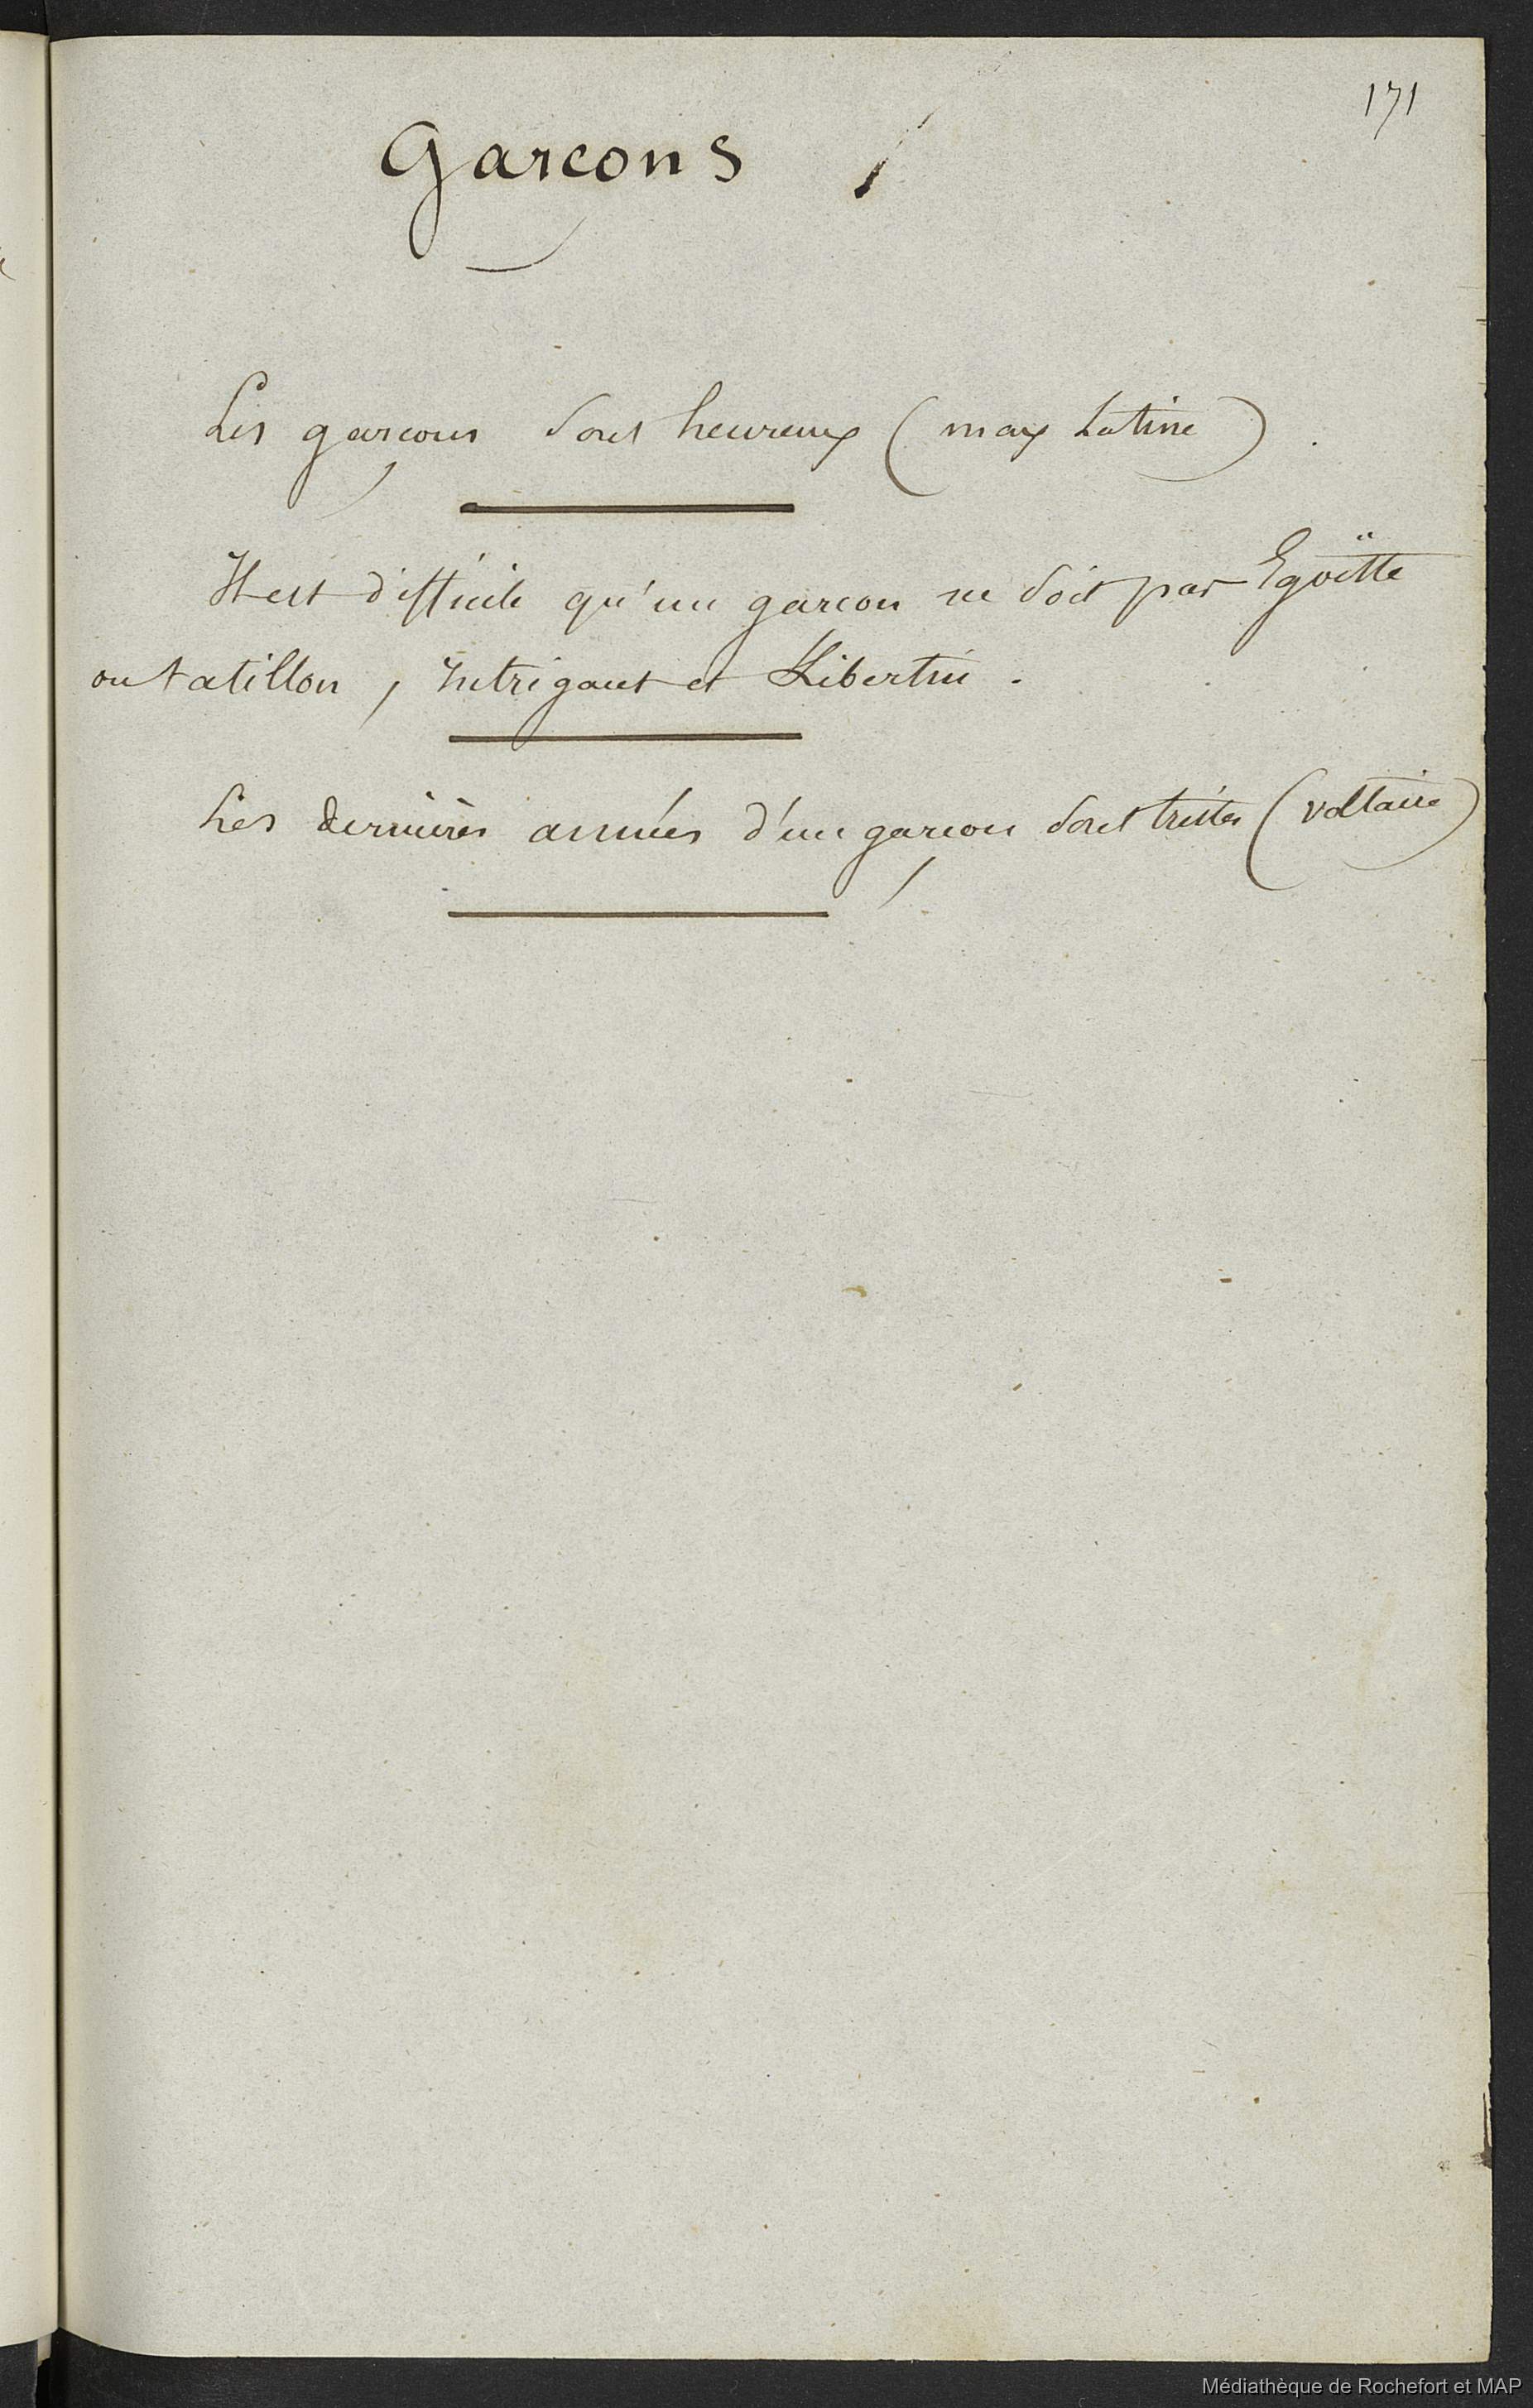 171
Garçons
Les garçons sont heureux (max Latine).
Il est difficile qu'un garcon ne soit pas Egoïste
ou tatillon, Intrigant et Libertin.
Les dernières années d'un garçon sont tristes (voltaire)
Médiathèque de Rochefort et MAP